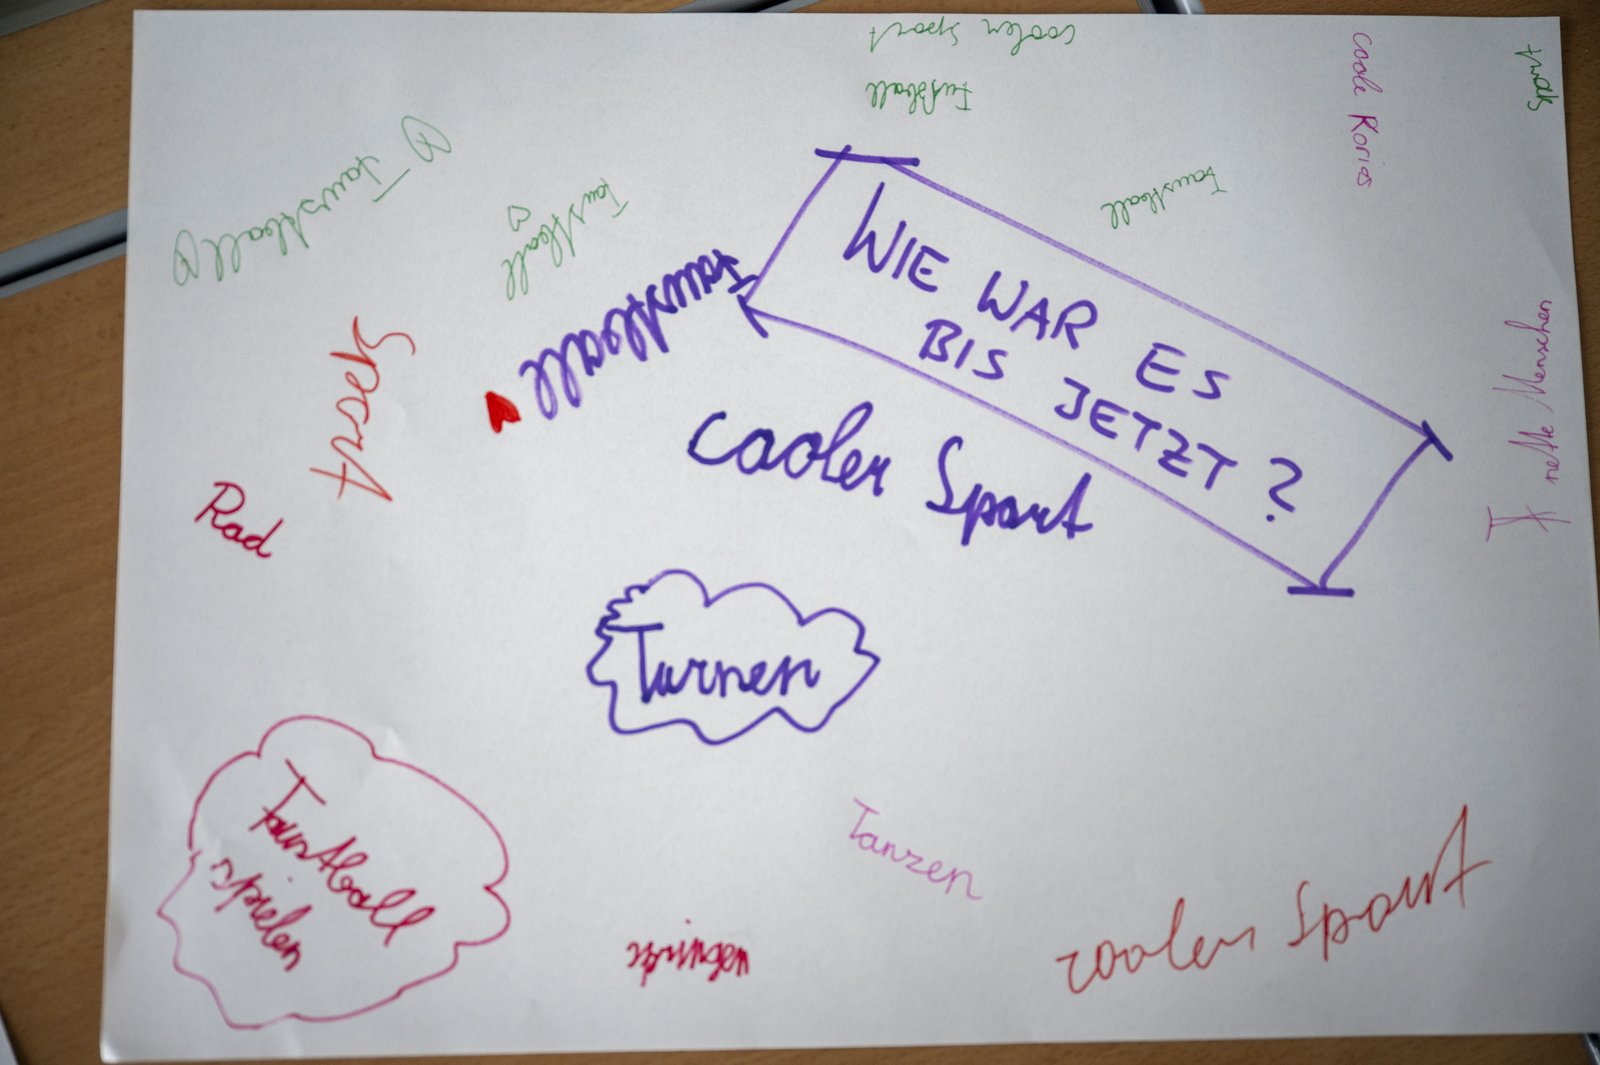 cooler Sport
Fußball
coole Stories
Sport
Faustball
Faustball
Faustball
nette Menschen
WIE WAR ES
BIS JETZT ?
Faustball
cooler Sport
Sport
Rad
Turnen
Faustball
spielen
Tanzen
cooler Sport